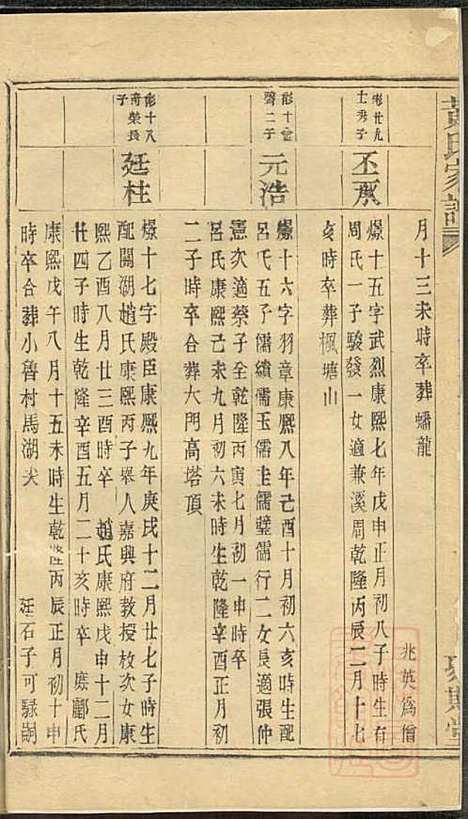 黃氏家譜
月十三未時卒葬蟠龍
兆英爲僧
士秀子
丕承
爆十五字武烈康熙七年戊申正月初八子時生有
周氏一子駿發一女適兼溪周乾隆丙辰二月十七
亥時卒葬楓塘山
聲二子
元浩
爆十六字羽章康熙八年己酉十月初六亥時生配
呂氏五子儒續儒玉儒圭儒璧儒行二女長適張仲
憲次適蔡子全乾隆丙寅七月初一申時卒
呂氏康熙己未九月初六未時生乾隆辛酉正月初
二子時卒合葬大門高塔頂
彬十八
奇榮長
子
廷柱
爆十七字殿臣康熙九年庚戌十二月廿七子時生
配闗湖趙氏康熙丙子舉人嘉興府教授枚次女康
熙乙酉八月廿三酉時卒 趙氏康熙戊申十二月
廿四子時生乾隆辛酉五月二十亥時卒 庶酈氏
康熙戊午八月十五未時生乾隆丙辰正月初十申
時卒合葬小魯村馬湖尖 廷石子可騄嗣